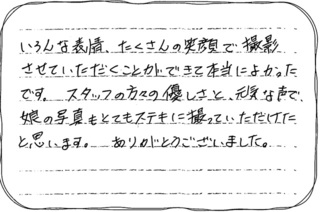 いろんな表情、たくさんの笑顔で撮影
させていただくことができて本当によかった
です。スタッフの方々の優しさと、元気な声で、
娘の写真もとてもステキに撮っていただけた
と思います。 ありがとうございました。